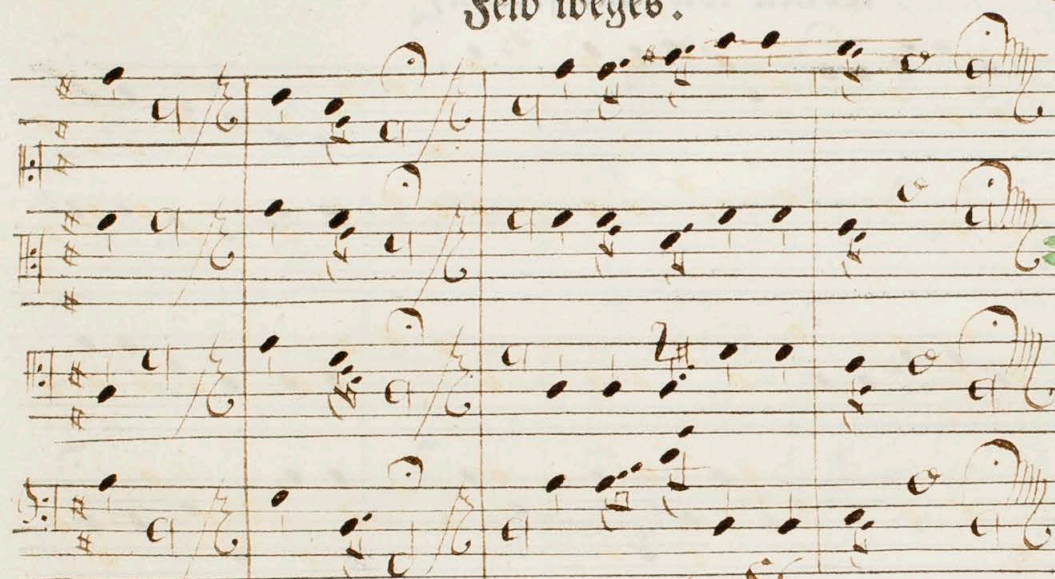 Feld weges.